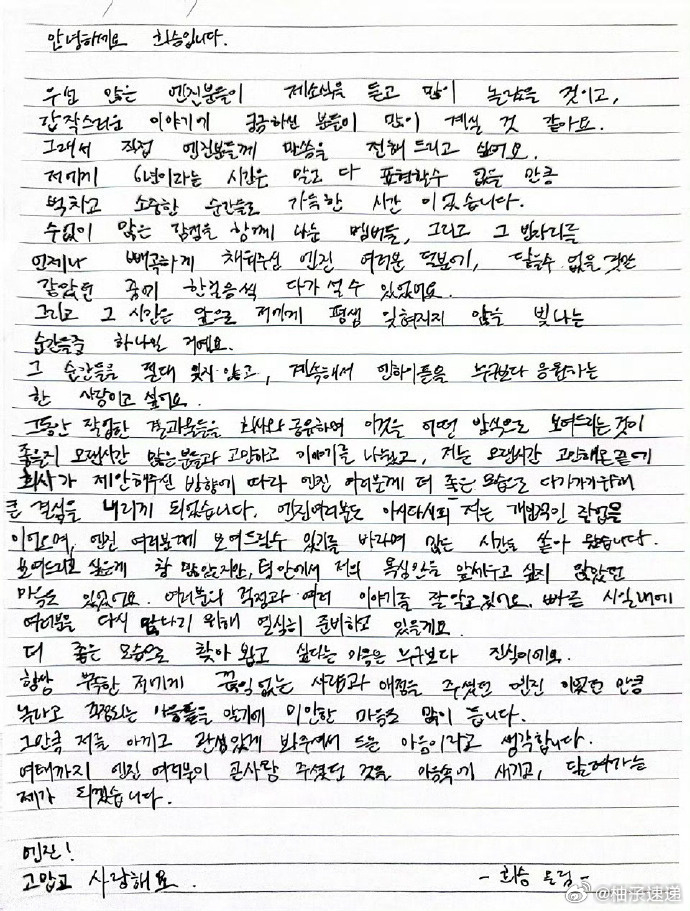 안녕하세요 희승입니다.
우선 많은 엔진분들이 제소식을 듣고 많이 놀랐을 것이고,
갑작스러운 이야기에 궁금하신 분들이 많이 계실 것 같아요.
그래서 직접 엔진분들께 말씀을 전해 드리고 싶어요.
저에게 6년이라는 시간은 말로 다 표현할수 없을 만큼
벅차고 소중한 순간들로 가득한 시간 이었습니다.
수없이 많은 감정을 함께 나눈 멤버들, 그리고 그 빈자리를
언제나 빼곡하게 채워주신 엔진 여러분 덕분에, 닿을수 없을 것만
같았던 꿈에 한걸음씩 다가 설 수 있었어요.
그리고 그 시간은 앞으로 저에게 평생 잊혀지지 않을 빛나는
순간들중 하나일 거예요.
그 순간들을 절대 잊지 않고, 계속해서 엔하이픈을 누구보다 응원하는
한 사람이고 싶어요.
그동안 작업한 결과물들을 회사와 공유하며 이것을 어떤 방식으로 보여드리는것이
좋을지 오랜시간 많은분들과 고민하고 이야기를 나눴고, 저는 오랜시간 고민해온끝에
회사가 제안해주신 방향에 따라 엔진 여러분께 더 좋은 모습으로 다가가기위해
큰 결심을 내리게 되었습니다. 엔진여러분도 아시다시피 저는 개인적인 작업을
이어오며, 엔진 여러분께 보여드릴수 있기를 바라며 많은 시간을 쏟아 왔습니다.
보여드리고 싶은게 참 많았지만, 팀 안에서 저의 욕심만을 앞세우고 싶지 않았던
마음도 있었어요. 여러분의 걱정과 여러 이야기를 잘 알고 있어요. 빠른 시일내에
여러분을 다시 만나기 위해 열심히 준비하고 있을게요.
더 좋은 모습으로 찾아 뵙고 싶다는 마음은 누구보다 진심이에요.
항상 부족한 저에게 끊임없는 사랑과 애정을 주셨던 엔진 이었던 만큼
놀라고 걱정되는 마음들을 알기에 미안한 마음도 많이 듭니다.
그만큼 저를 아끼고 관심있게 봐주셔서 드는 마음이라고 생각합니다.
여태까지 엔진 여러분이 큰사랑 주셨던 것을 마음속에 새기고, 달려가는
제가 되겠습니다.
엔진!
고맙고 사랑해요. - 희승 드림 -
@柚子速递